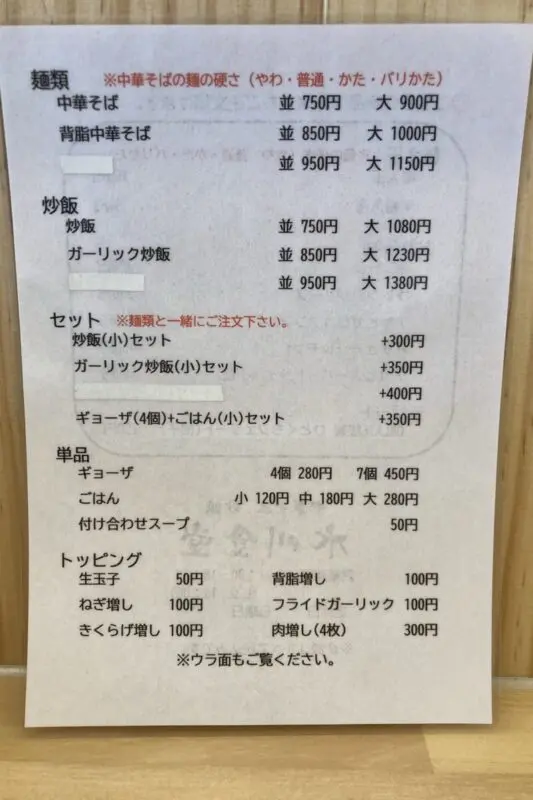 麺類 ※中華そばの麺の硬さ（やわ・普通・かた・バリかた）
中華そば 並 750円 大 900円
背脂中華そば 並 850円 大 1000円
並 950円 大 1150円
炒飯
炒飯 並 750円 大 1080円
ガーリック炒飯 並 850円 大 1230円
並 950円 大 1380円
セット ※麺類と一緒にご注文下さい。
炒飯(小)セット +300円
ガーリック炒飯(小)セット +350円
+400円
ギョーザ(4個)+ごはん(小)セット +350円
単品
ギョーザ 4個 280円 7個 450円
ごはん 小 120円 中 180円 大 280円
付け合わせスープ 50円
トッピング
生玉子 50円 背脂増し 100円
ねぎ増し 100円 フライドガーリック 100円
きくらげ増し 100円 肉増し(4枚) 300円
※ウラ面もご覧ください。